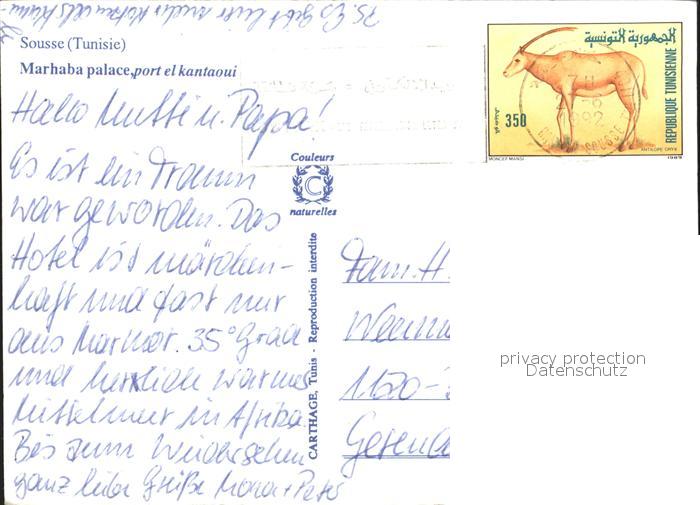 Sousse (Tunisie)
Marhaba palace, port el kantaoui
Hallo Mutti u. Papa!
Es ist ein Traum
war geworden. Das
Hotel ist märchen-
haft und fast nur
aus Marmor. 35° Grad
und herrlich warmes
Mittelmeer in Afrika.
Bis zum Wiedersehen
ganz liebe Grüße Mona + Peter
P.S. Es gibt hier
Couleurs
C
naturelles
CARTHAGE, Tunis - Reproduction interdite
Fam. H.
1120-
الجمهورية التونسية
REPUBLIQUE TUNISIENNE
350
1992
SOUSSE
MONCEF MANSI
ANTILOPE ORYX
1989
privacy protection
Datenschutz